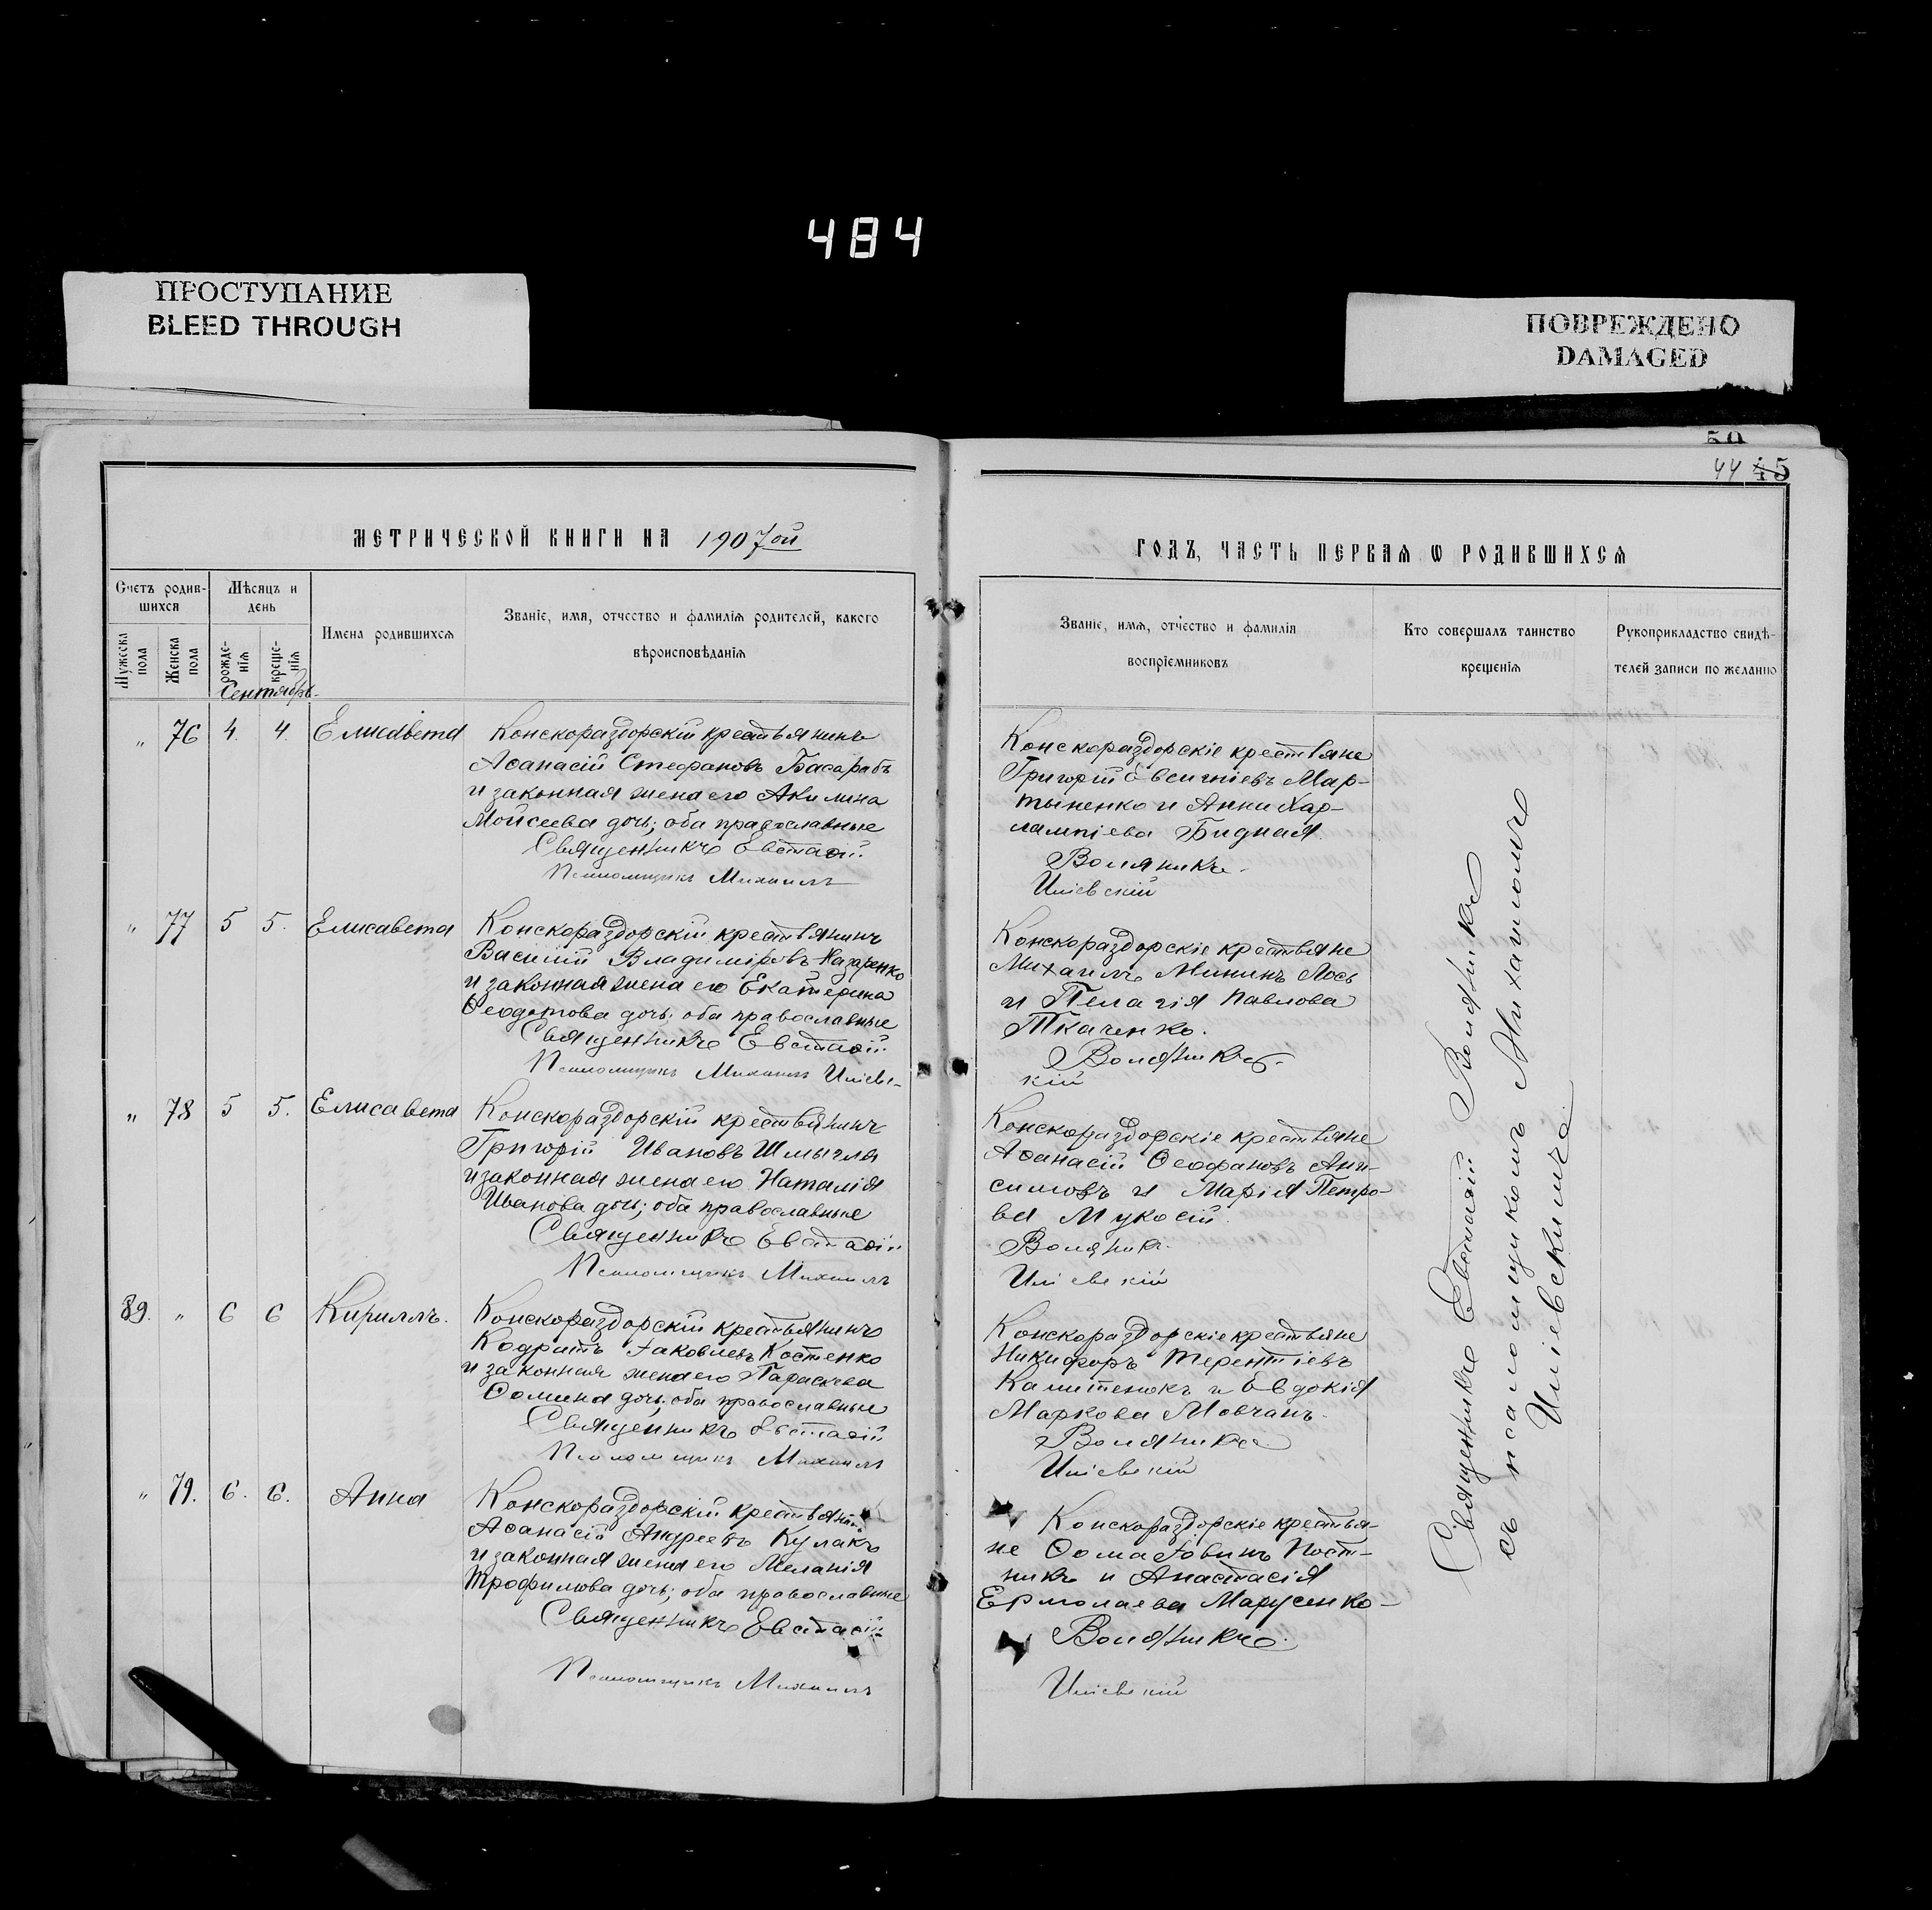 484
ПРОСТУПАНИЕ
BLEED THROUGH
ПОВРЕЖДЕНО
DAMAGED
50
44 45
МЕТРИЧЕСКОЙ КНИГИ НА 1907ой
ГОДЪ, ЧАСТЬ ПЕРВАЯ Ѡ РОДИВШИХСЯ
Счетъ родив-
шихся
Мужеска
пола
Женска
пола
Мѣсяцъ и
день
рожде-
нія
креще-
нія
Имена родившихся
Званіе, имя, отчество и фамилія родителей, какого
вѣроисповѣданія
Званіе, имя, отчество и фамилія
воспріемниковъ
Кто совершалъ таинство
крещенія
Рукоприкладство свидѣ-
телей записи по желанію
Сентябрь
" 76 4. 4. Елисавета
Конскораздорскій крестьянинъ
Аѳанасій Стефановъ Басарабъ
и законная жена его Акилина
Мойсеева дочь; оба православные
Священникъ Евстаѳій
Псаломщикъ Михаилъ
Конскораздорскіе крестьяне
Григорій Евсигніевъ Мар-
тыненко и Анна Хар-
лампіева Бидная.
Воляникъ.
Иліевскій
" 77 5 5. Елисавета
Конскораздорскій крестьянинъ
Василій Владиміровъ Назаренко
и законная жена его Екатерина
Ѳеодотова дочь; оба православные
Священникъ Евстаѳій
Псаломщикъ Михаилъ Иліевс-
Конскораздорскіе крестьяне
Михаилъ Мининъ Лось
и Пелагія Павлова
Ткаченко.
Воляникъ.
кій
" 78 5 5. Елисавета
Конскораздорскій крестьянинъ
Григорій Ивановъ Шмыгля
и законная жена его Наталія
Иванова дочь; оба православные
Священникъ Евстаѳій
Псаломщикъ Михаилъ
Конскораздорскіе крестьяне
Аѳанасій Ѳеофановъ Ани-
симовъ и Марія Петро-
ва Мукосій.
Воляникъ.
Иліевскій
89. " 6 6 Кириллъ.
Конскораздорскій крестьянинъ
Кодратъ Іаковлевъ Костенко
и законная жена его Параскева
Ѳомина дочь; оба православные
Священникъ Евстаѳій
Псаломщикъ Михаилъ
Конскораздорскіе крестьяне
Никифоръ Терентіевъ
Калитенокъ и Евдокія
Маркова Мовчанъ.
Воляникъ.
Иліевскій
" 79. 6. 6. Анна
Конскораздорскій крестьянинъ
Аѳанасій Андреевъ Кулакъ
и законная жена его Меланія
Трофимова дочь; оба православные
Священникъ Евстаѳій
Псаломщикъ Михаилъ
Конскораздорскіе крестья-
не Ѳома Іовинъ Пост-
никъ и Анастасія
Ермолаева Марусенко
Воляникъ.
Иліевскій
Священникъ Евстаѳій Воляникъ
съ псаломщикомъ Михаиломъ
Иліевскимъ.